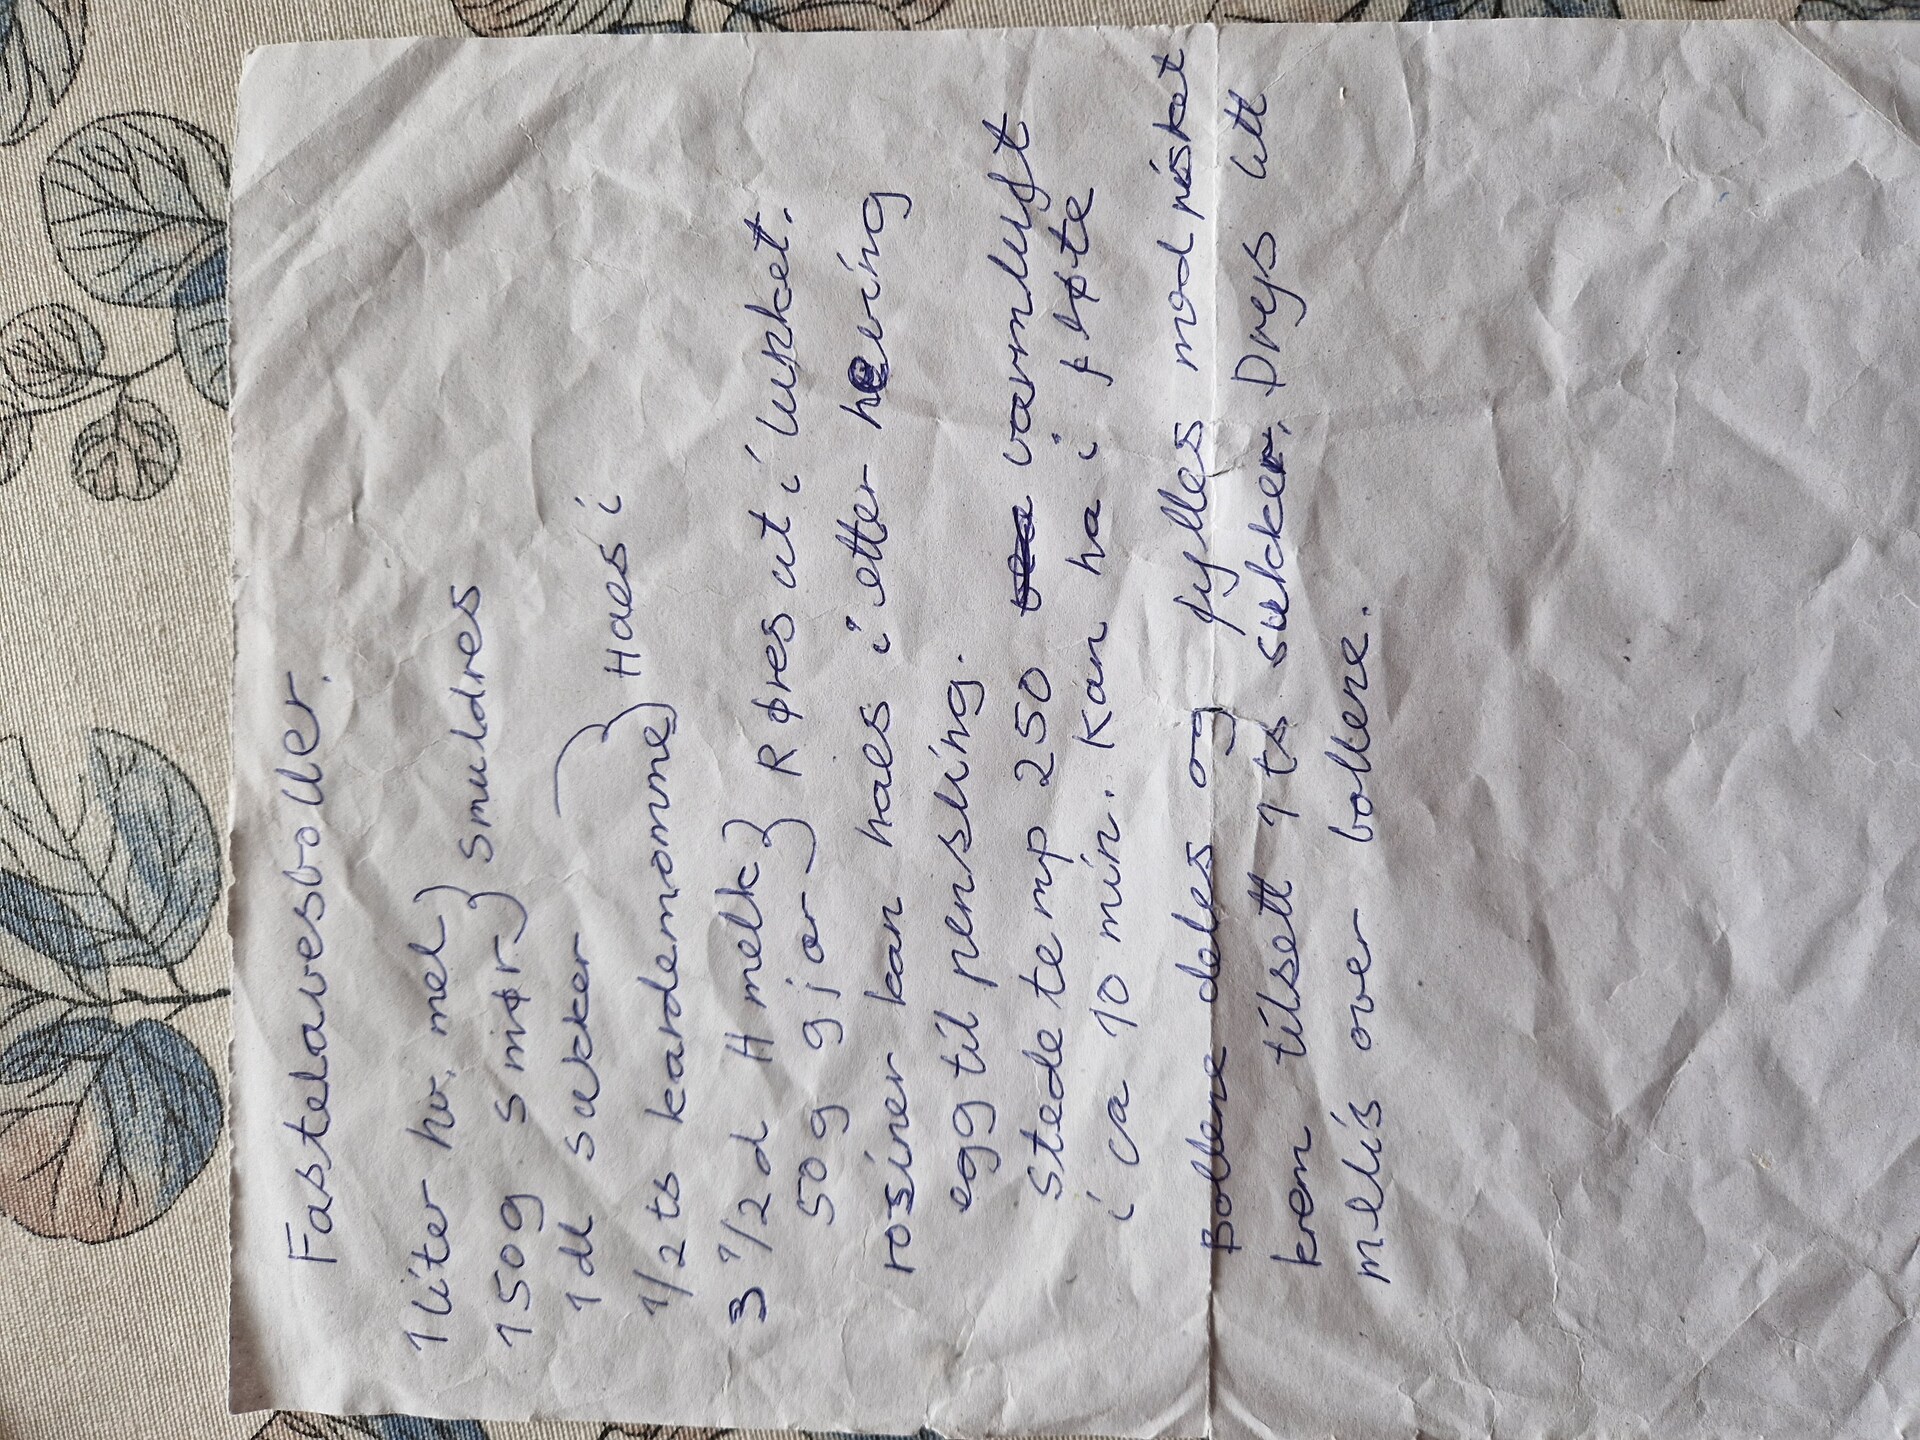 Fastelavesboller.
1 liter hv. mel
150g smør } smuldres
1 dl sukker
1/2 ts kardemomme } Haes i
3 1/2 d H melk
50g gjær } Røres ut i lunket.
rosiner kan haes i etter heving
egg til pensling.
stede temp 250 varmluft
i ca 10 min. Kan ha i fløte
Bollene deles og fylles med pisket
krem tilsett 1 ts sukker. Drys litt
melis over bollene.